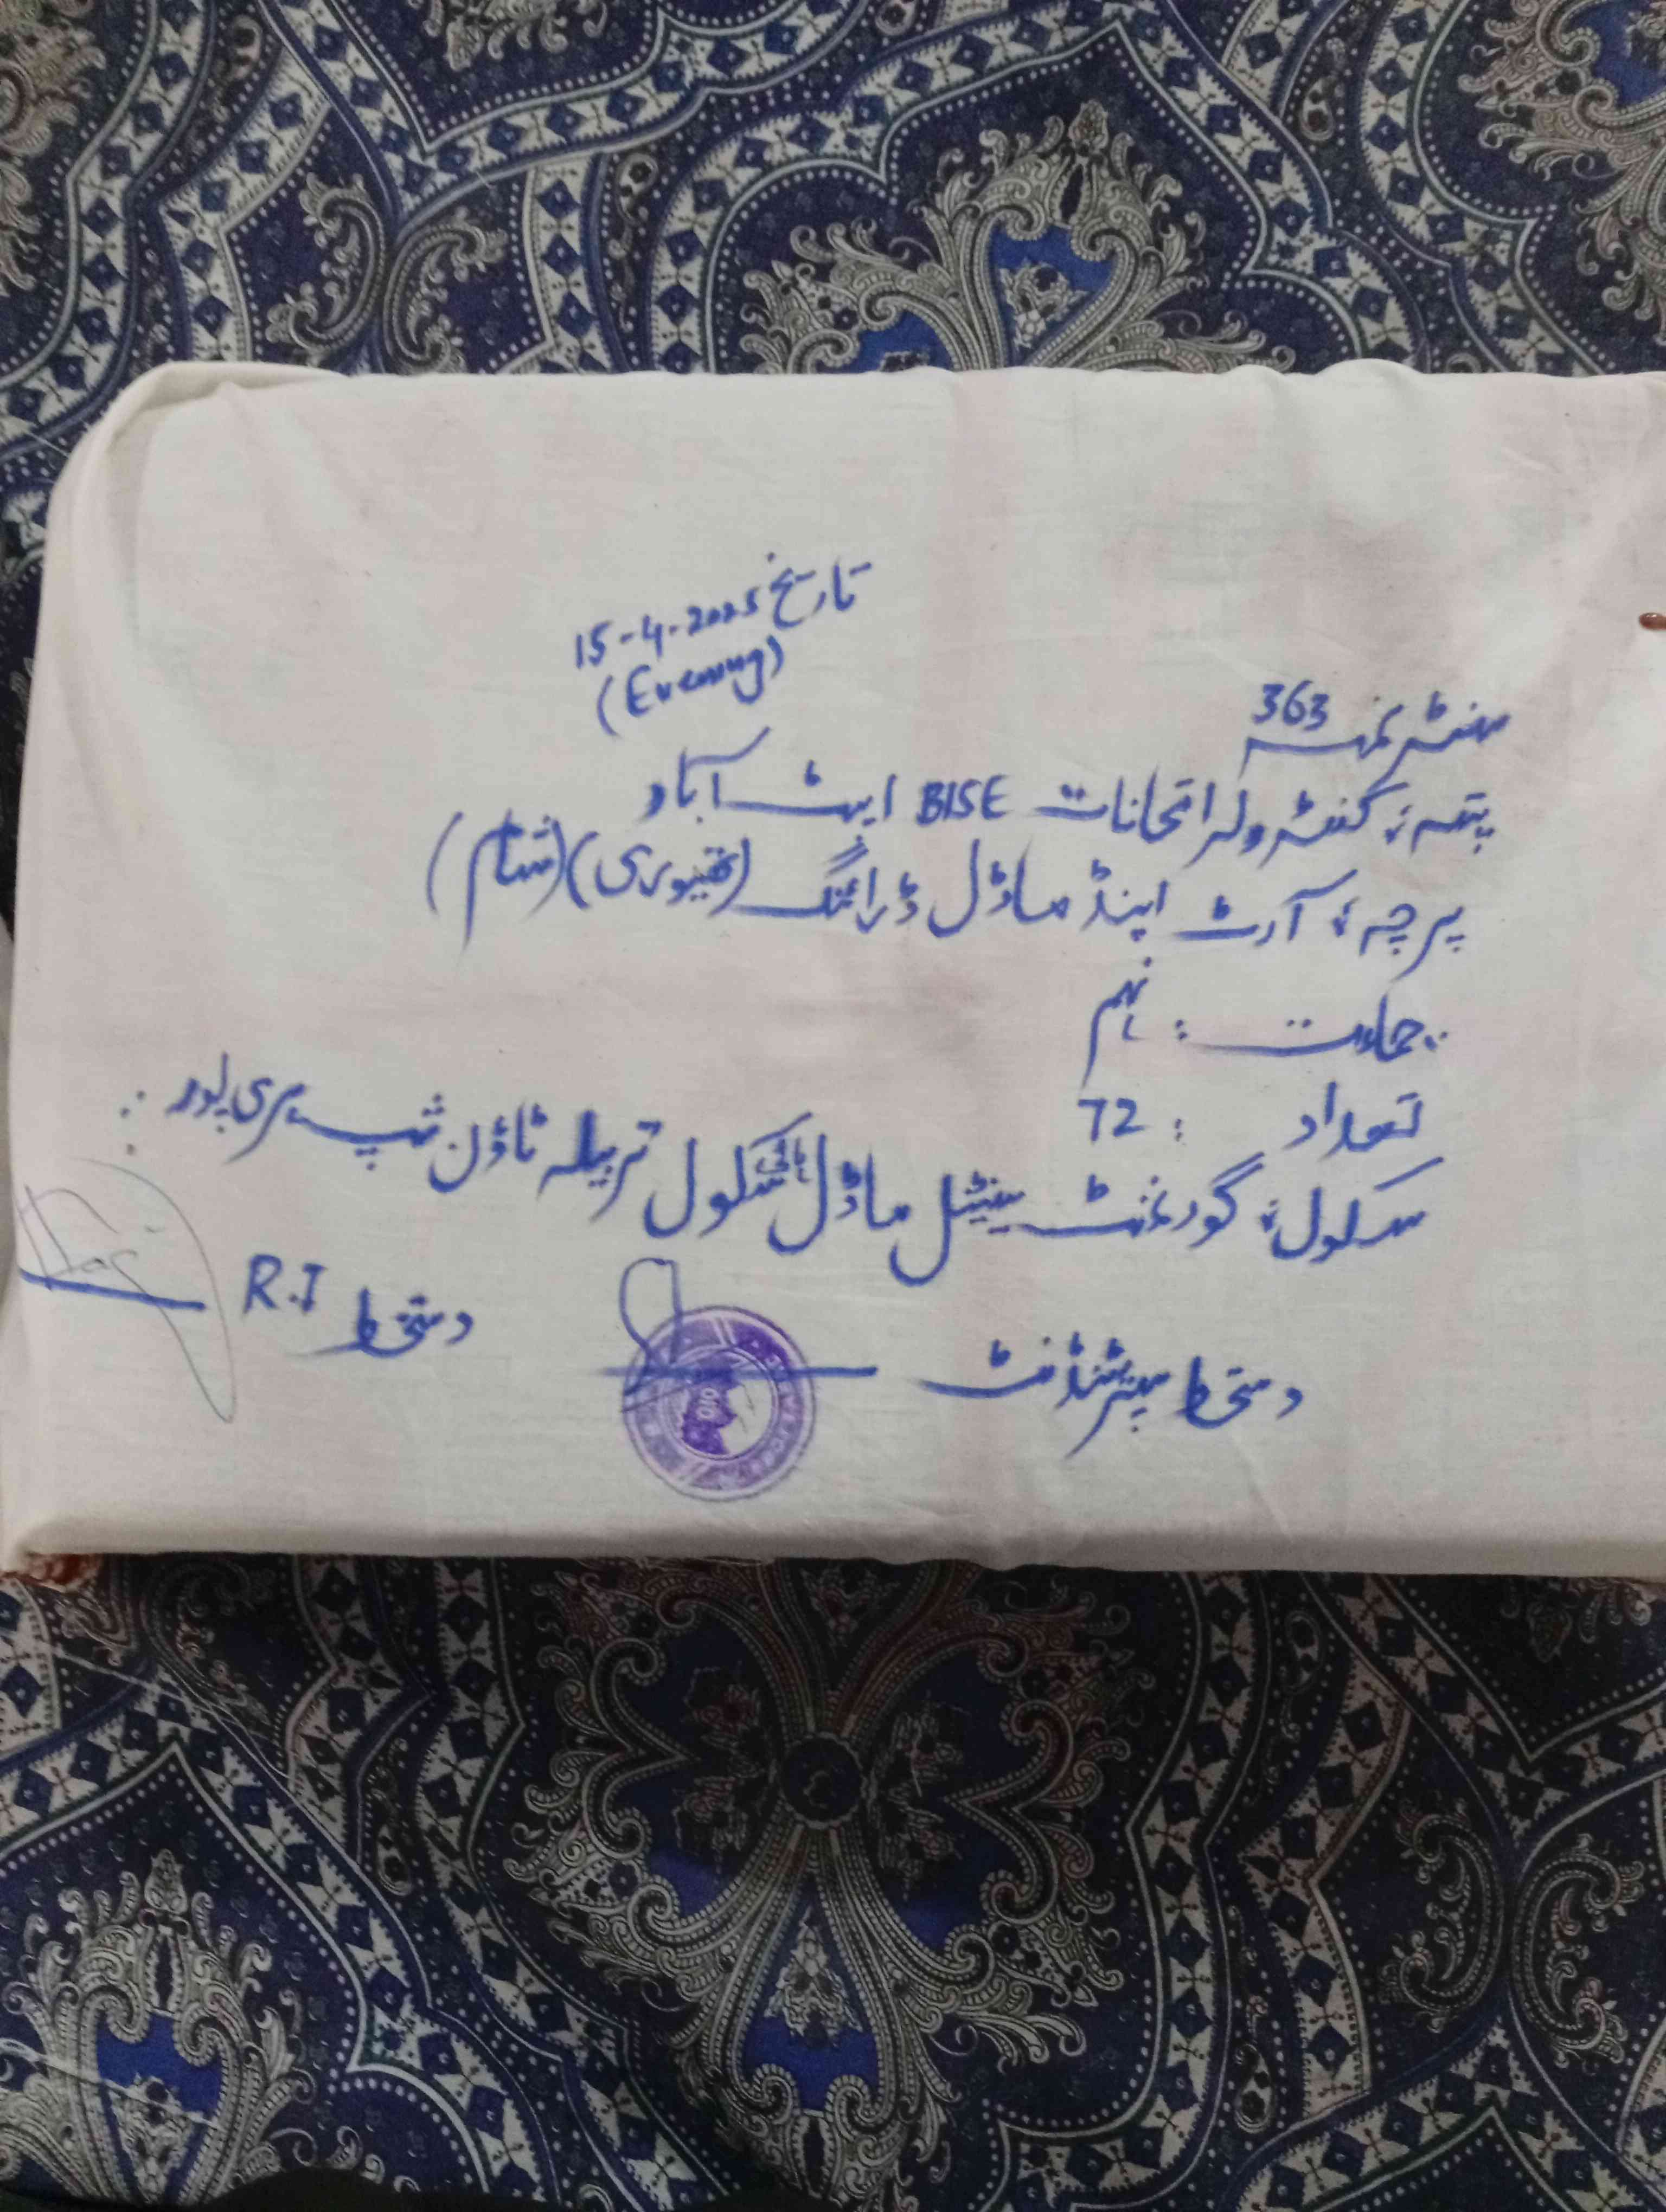 تاریخ 15-4-2025
(Evening)
سنٹر نمبر 363
پتہ: کنٹرولر امتحانات BISE ایبٹ آباد
پرچہ: آرٹ اینڈ ماڈل ڈرائنگ (تھیوری) (شام)
جماعت : نہم
تعداد : 72
سکول: گورنمنٹ سینٹیل ماڈل ہائی سکول تربیلہ ٹاؤن شپ ہری پور
دستخط R.I
دستخط سپرنٹنڈنٹ